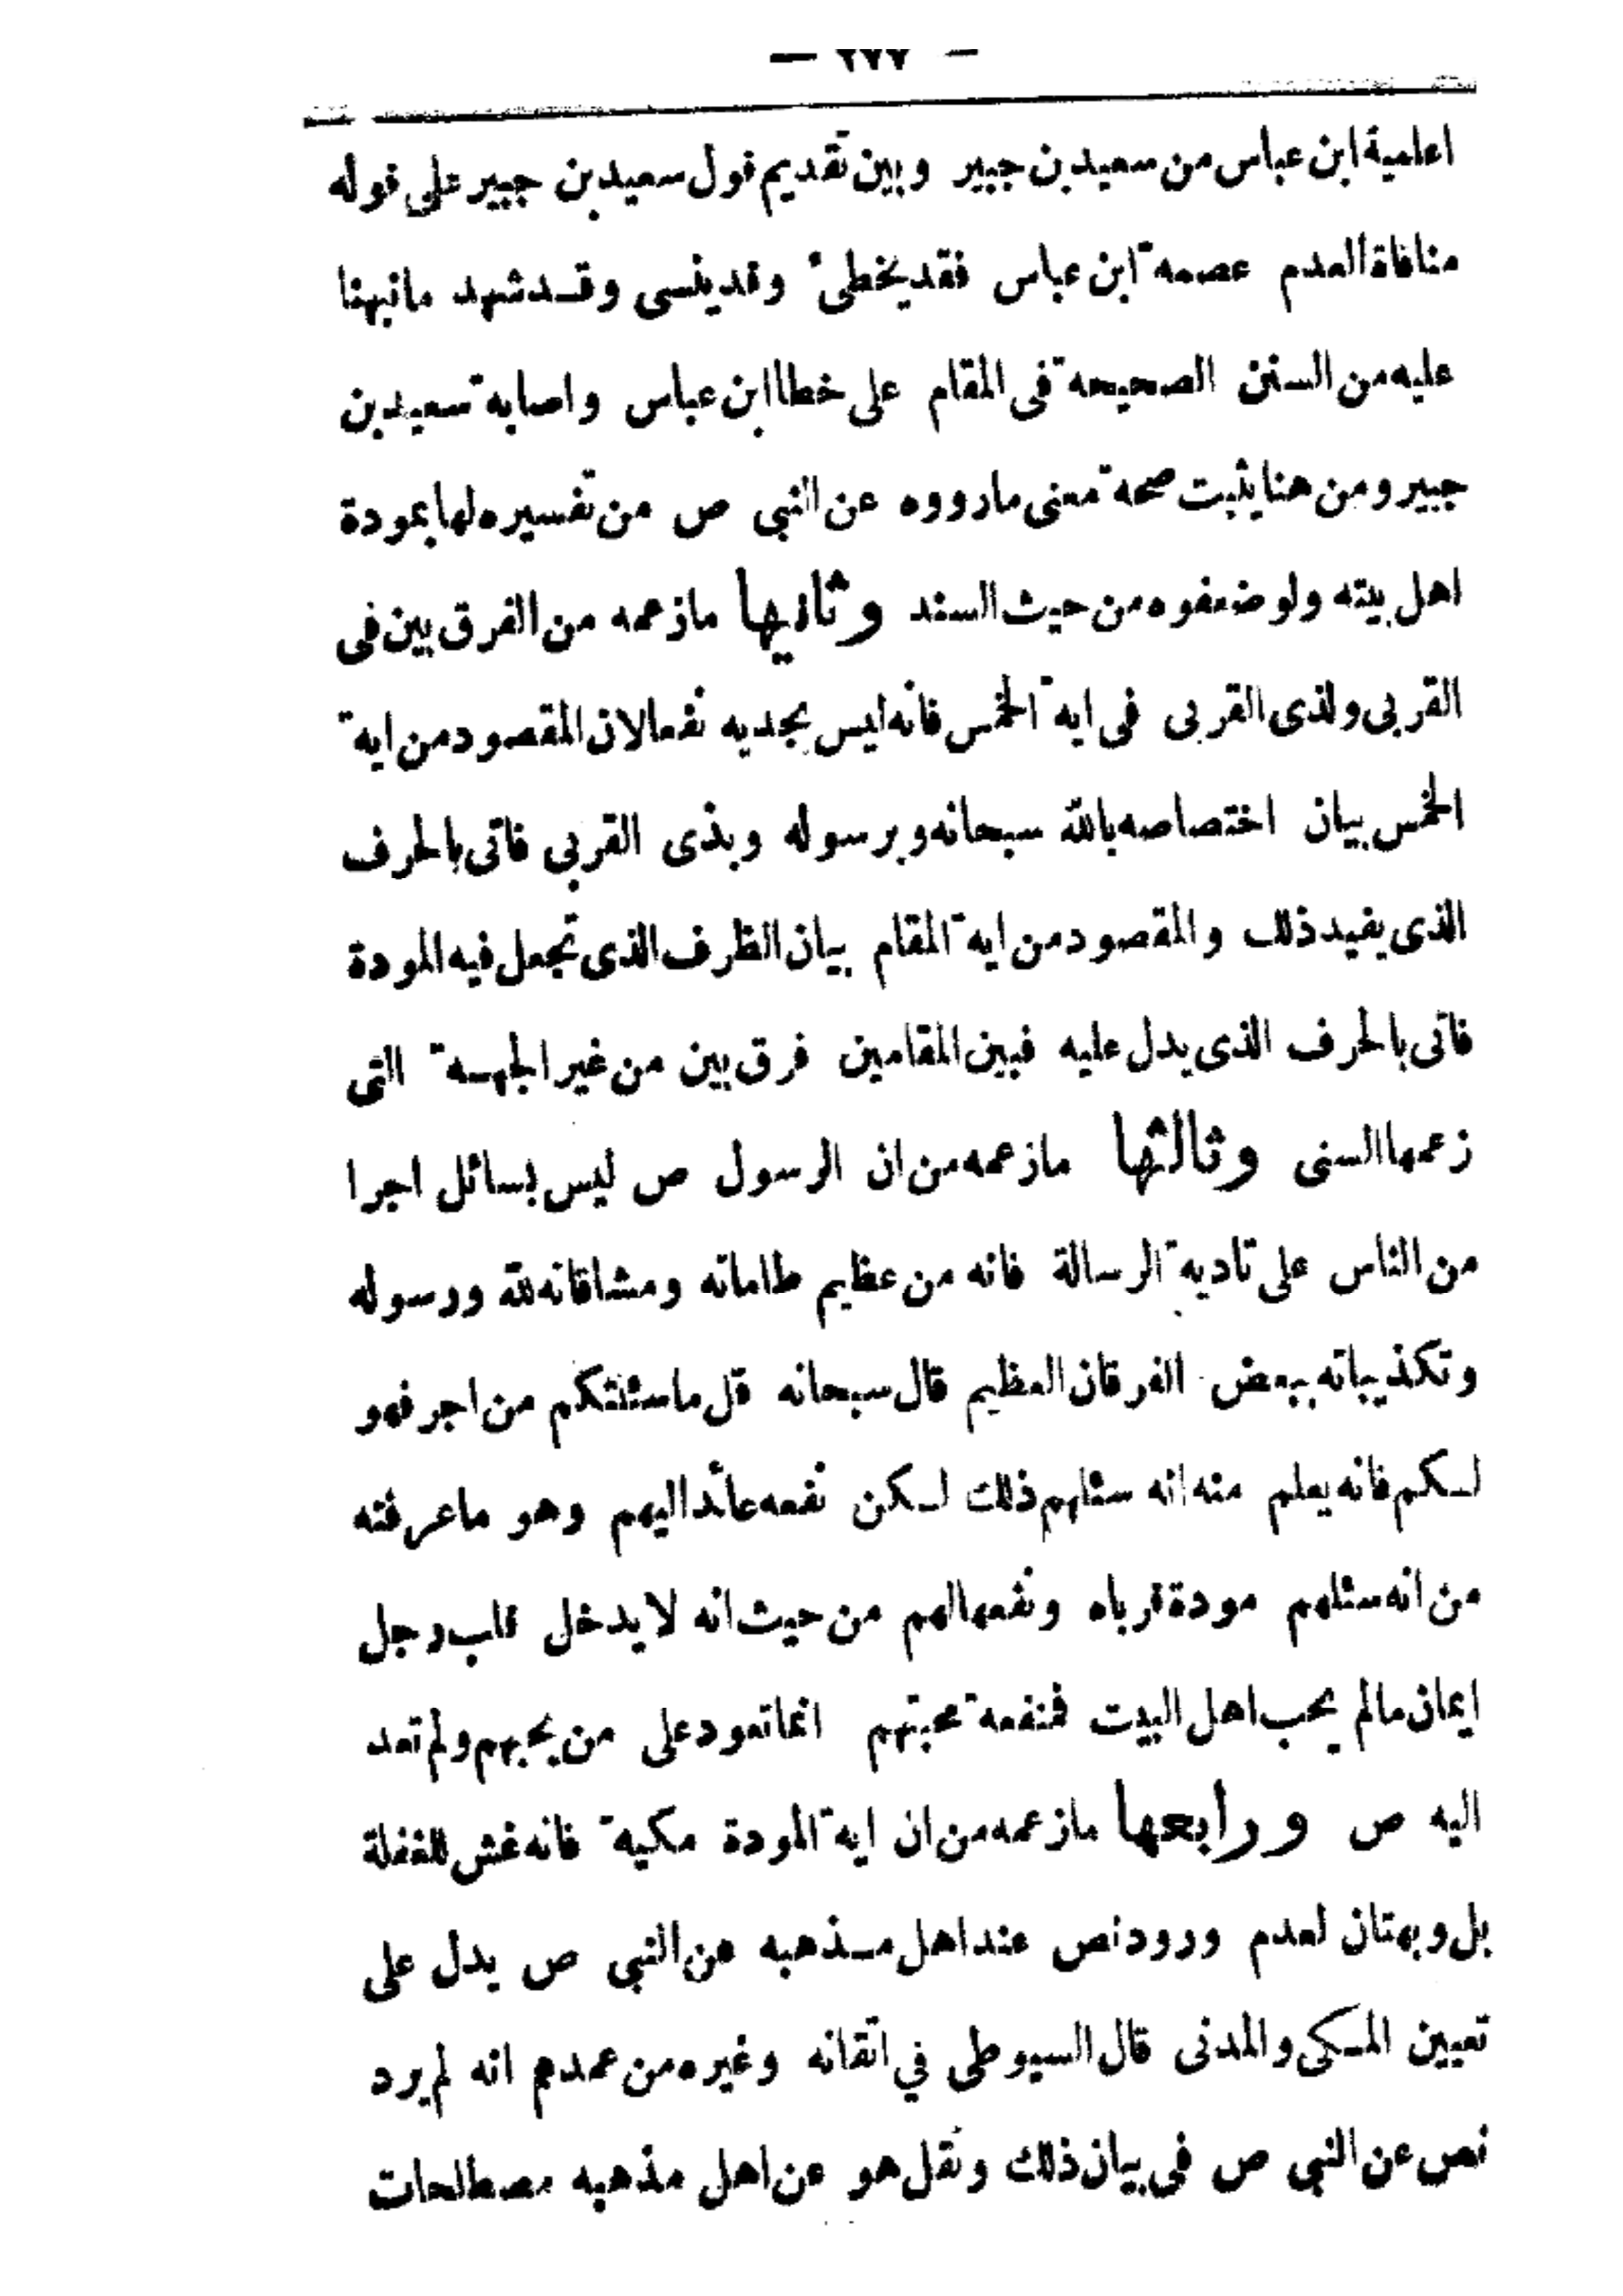 — ٢٧٧ —
اعلمية ابن عباس من سعيد بن جبير وبين تقديم قول سعيد بن جبير على قوله
منافاة العدم عصمة ابن عباس فقد يخطئ وقد ينسى وقد شهد ما نبهنا
عليه من السنن الصحيحة فى المقام على خطا ابن عباس واصابة سعيد بن
جبير ومن هنا يثبت صحة معنى مارووه عن النبى ص من تفسيره لها بمودة
اهل بيته ولو ضعفوه من حيث السند وثانيها مازعمه من الفرق بين فى
القربى ولذى القربى فى اية الخمس فانه ليس بجديه نفعا لان المقصود من اية
الخمس بيان اختصاصه بالله سبحانه وبرسوله وبذى القربى فاتى بالحرف
الذى يفيد ذلك والمقصود من اية المقام بيان الظرف الذى تجعل فيه المودة
فاتى بالحرف الذى يدل عليه فبين المقامين فرق بين من غير الجهة التى
زعمها السنى وثالثها مازعمه من ان الرسول ص ليس بسائل اجرا
من الناس على تادية الرسالة فانه من عظيم طاماته ومشاقاته لله ورسوله
وتكذيباته ببعض الفرقان العظيم قال سبحانه قل ما سئلتكم من اجر فهو
لكم فانه يعلم منه انه سئلهم ذلك لكن نفعه عائد اليهم وهو ما عرفته
من انه سئلهم مودة قرباه ونفعها لهم من حيث انه لا يدخل قلب رجل
ايمان مالم يحب اهل البيت فمنفعة محبتهم انما تعود على من يحبهم ولم تعد
اليه ص ورابعها مازعمه من ان اية المودة مكية فانه غش للغفلة
بل وبهتان لعدم ورود نص عند اهل مذهبه عن النبى ص يدل على
تعيين المكى والمدنى قال السيوطى في اتقانه وغيره من عمدهم انه لم يرد
نص عن النبى ص فى بيان ذلك ونقل هو عن اهل مذهبه مصطلحات